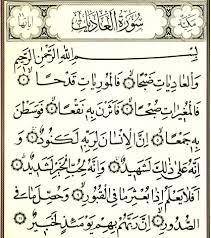 سُورَةُ الْعَادِيَاتِ
بِسْمِ اللهِ الرَّحْمٰنِ الرَّحِيمِ
وَالْعَادِيَاتِ ضَبْحًا ۝ فَالْمُورِيَاتِ قَدْحًا ۝
فَالْمُغِيرَاتِ صُبْحًا ۝ فَأَثَرْنَ بِهِ نَقْعًا ۝ فَوَسَطْنَ
بِهِ جَمْعًا ۝ إِنَّ الْإِنْسَانَ لِرَبِّهِ لَكَنُودٌ ۝
وَإِنَّهُ عَلَى ذٰلِكَ لَشَهِيدٌ ۝ وَإِنَّهُ لِحُبِّ الْخَيْرِ لَشَدِيدٌ ۝
أَفَلَا يَعْلَمُ إِذَا بُعْثِرَ مَا فِي الْقُبُورِ ۝ وَحُصِّلَ مَا فِي
الصُّدُورِ ۝ إِنَّ رَبَّهُمْ بِهِمْ يَوْمَئِذٍ لَخَبِيرٌ ۝